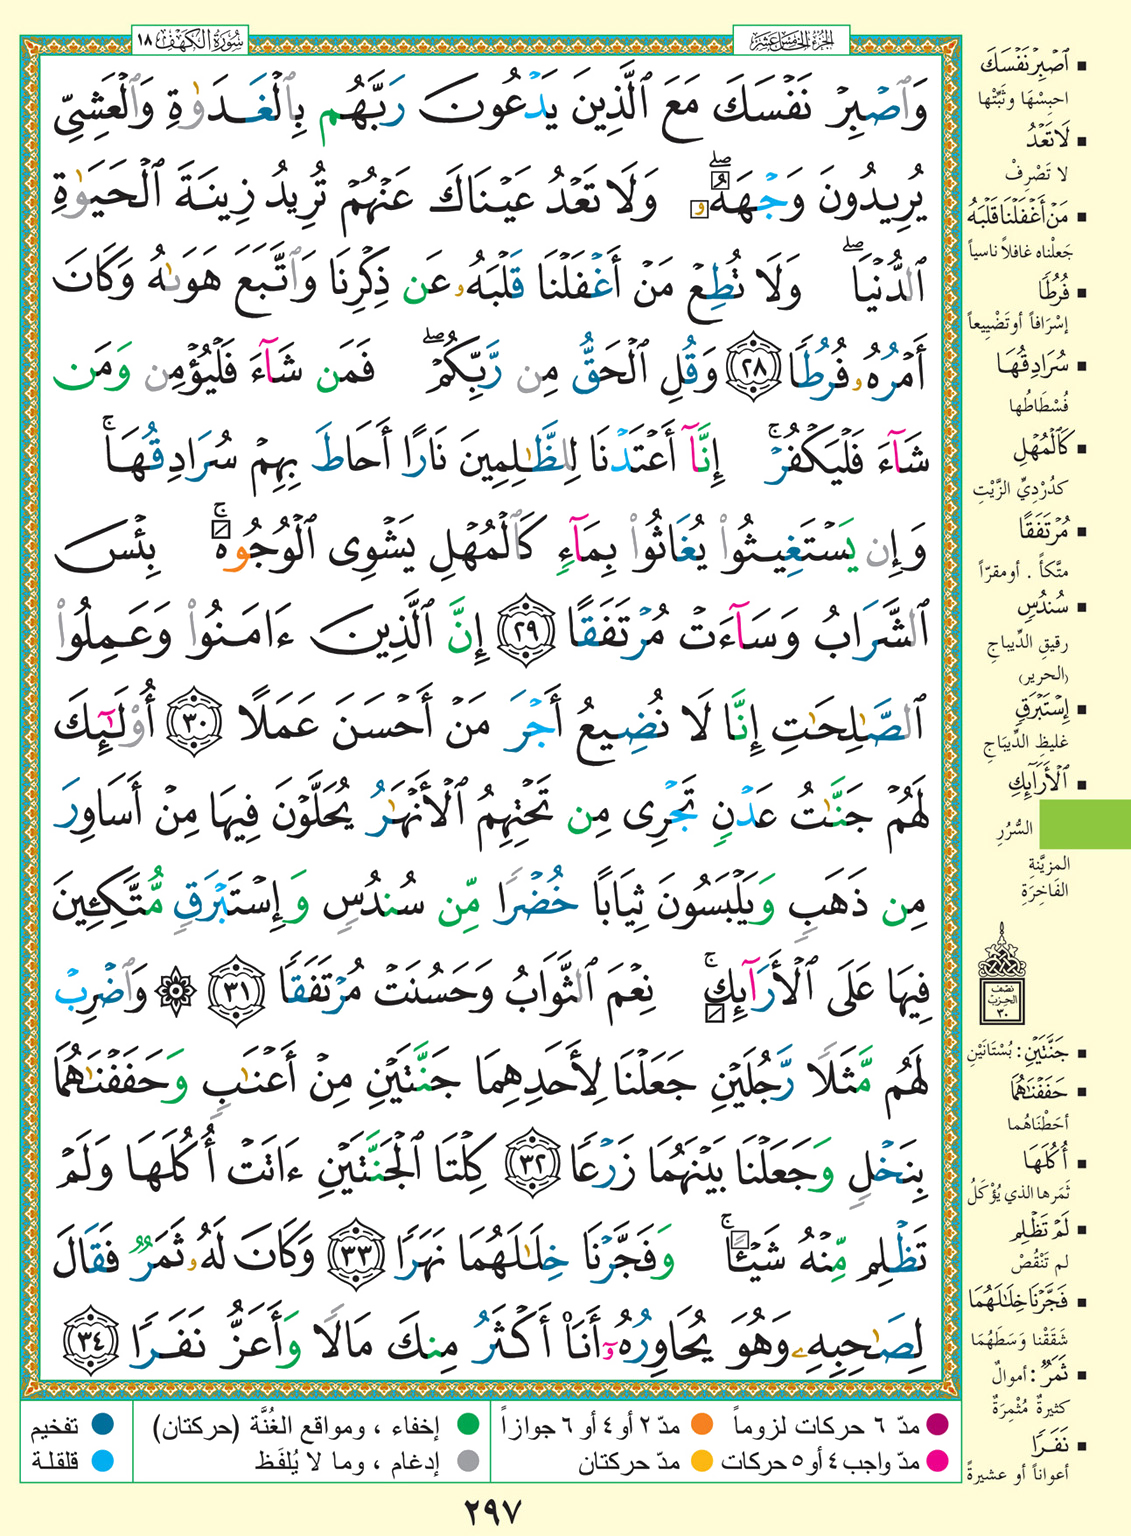 سُورَةُ الكَهْفِ ١٨
الجُزءُ الخَامِسَ عَشَرَ
وَٱصْبِرْ نَفْسَكَ مَعَ ٱلَّذِينَ يَدْعُونَ رَبَّهُم بِٱلْغَدَوٰةِ وَٱلْعَشِىِّ
يُرِيدُونَ وَجْهَهُۥ ۖ وَلَا تَعْدُ عَيْنَاكَ عَنْهُمْ تُرِيدُ زِينَةَ ٱلْحَيَوٰةِ
ٱلدُّنْيَا ۖ وَلَا تُطِعْ مَنْ أَغْفَلْنَا قَلْبَهُۥ عَن ذِكْرِنَا وَٱتَّبَعَ هَوَىٰهُ وَكَانَ
أَمْرُهُۥ فُرُطًا ٢٨ وَقُلِ ٱلْحَقُّ مِن رَّبِّكُمْ ۖ فَمَن شَآءَ فَلْيُؤْمِن وَمَن
شَآءَ فَلْيَكْفُرْ ۚ إِنَّآ أَعْتَدْنَا لِلظَّٰلِمِينَ نَارًا أَحَاطَ بِهِمْ سُرَادِقُهَا ۚ
وَإِن يَسْتَغِيثُوا۟ يُغَاثُوا۟ بِمَآءٍ كَٱلْمُهْلِ يَشْوِى ٱلْوُجُوهَ ۚ بِئْسَ
ٱلشَّرَابُ وَسَآءَتْ مُرْتَفَقًا ٢٩ إِنَّ ٱلَّذِينَ ءَامَنُوا۟ وَعَمِلُوا۟
ٱلصَّٰلِحَٰتِ إِنَّا لَا نُضِيعُ أَجْرَ مَنْ أَحْسَنَ عَمَلًا ٣٠ أُو۟لَٰٓئِكَ
لَهُمْ جَنَّٰتُ عَدْنٍ تَجْرِى مِن تَحْتِهِمُ ٱلْأَنْهَٰرُ يُحَلَّوْنَ فِيهَا مِنْ أَسَاوِرَ
مِن ذَهَبٍ وَيَلْبَسُونَ ثِيَابًا خُضْرًا مِّن سُندُسٍ وَإِسْتَبْرَقٍ مُّتَّكِـِٔينَ
فِيهَا عَلَى ٱلْأَرَآئِكِ ۚ نِعْمَ ٱلثَّوَابُ وَحَسُنَتْ مُرْتَفَقًا ٣١ ۞ وَٱضْرِبْ
لَهُم مَّثَلًا رَّجُلَيْنِ جَعَلْنَا لِأَحَدِهِمَا جَنَّتَيْنِ مِنْ أَعْنَٰبٍ وَحَفَفْنَٰهُمَا
بِنَخْلٍ وَجَعَلْنَا بَيْنَهُمَا زَرْعًا ٣٢ كِلْتَا ٱلْجَنَّتَيْنِ ءَاتَتْ أُكُلَهَا وَلَمْ
تَظْلِم مِّنْهُ شَيْـًٔا ۚ وَفَجَّرْنَا خِلَٰلَهُمَا نَهَرًا ٣٣ وَكَانَ لَهُۥ ثَمَرٌ فَقَالَ
لِصَٰحِبِهِۦ وَهُوَ يُحَاوِرُهُۥٓ أَنَا۠ أَكْثَرُ مِنكَ مَالًا وَأَعَزُّ نَفَرًا ٣٤
ٱصْبِرْ نَفْسَكَ
احبِسْها وثَبِّتْها
لَا تَعْدُ
لا تَصْرِفْ
مَنْ أَغْفَلْنَا قَلْبَهُ
جَعلْناه غافلاً ناسياً
فُرُطًا
إسْرَافاً أو تَضْيِيعاً
سُرَادِقُهَا
فُسْطَاطُها
كَٱلْمُهْلِ
كدُرْدِيِّ الزَّيْتِ
مُرْتَفَقًا
متَّكأً . أو مقرّاً
سُندُسٍ
رقيقِ الدِّيباجِ
(الحرير)
إِسْتَبْرَقٍ
غليظِ الدِّيباجِ
ٱلْأَرَآئِكِ
السُّرُرِ
المزيَّنةِ
الفَاخِرَةِ
نصف
الحزب
٣٠
جَنَّتَيْنِ : بُسْتَانَيْنِ
حَفَفْنَٰهُمَا
أحَطْنَاهُما
أُكُلَهَا
ثَمَرها الذي يُؤكَلُ
لَمْ تَظْلِم
لم تَنْقُصْ
فَجَّرْنَا خِلَٰلَهُمَا
شَقَقْنا وَسَطَهُمَا
ثَمَرٌ : أموالٌ
كثيرةٌ مُثْمِرَةٌ
نَفَرًا
أعواناً أو عشيرةً
مدّ ٦ حركات لزوماً مدّ ٢ أو ٤ أو ٦ جوازاً إخفاء ، ومواقع الغُنَّة (حركتان) تفخيم
مدّ واجب ٤ أو ٥ حركات مدّ حركتان إدغام ، وما لا يُلفَظ قلقلة
٢٩٧